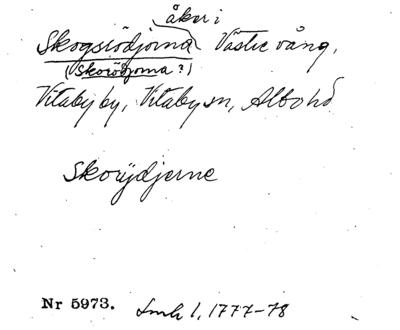 åker i
Skogsrödjorna Västre vång,
(Skorödjorna?)
Vitaby by, Vitaby sn, Albo hd
Skorÿdjerne
Nr 5973. Lmh 1, 1777-78